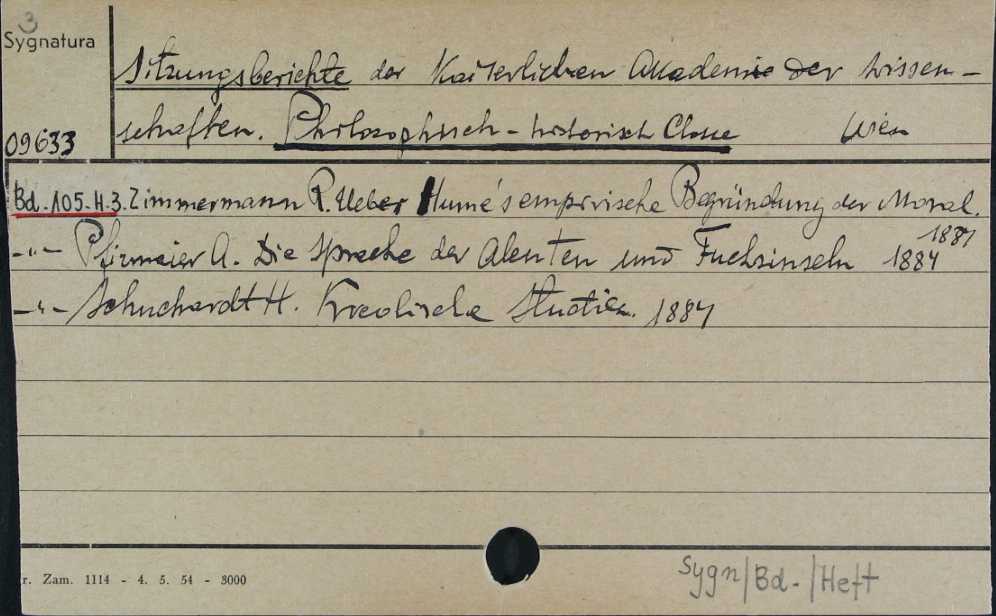 3
Sygnatura
Sitzungsberichte der Kaiserlichen Akademie der Wissen-
09633 schaften. Philosophisch-historisch Classe Wien
Bd. 105. H. 3. Zimmermann R. Ueber Hume's empirische Begründung der Moral.
1884
-"- Pfizmaier A. Die Sprache der Aleuten und Fuchsinseln 1884
-"- Schuchardt H. Kreolische Studien. 1884
r. Zam. 1114 - 4. 5. 54 - 3000
Sygn/Bd-/Heft